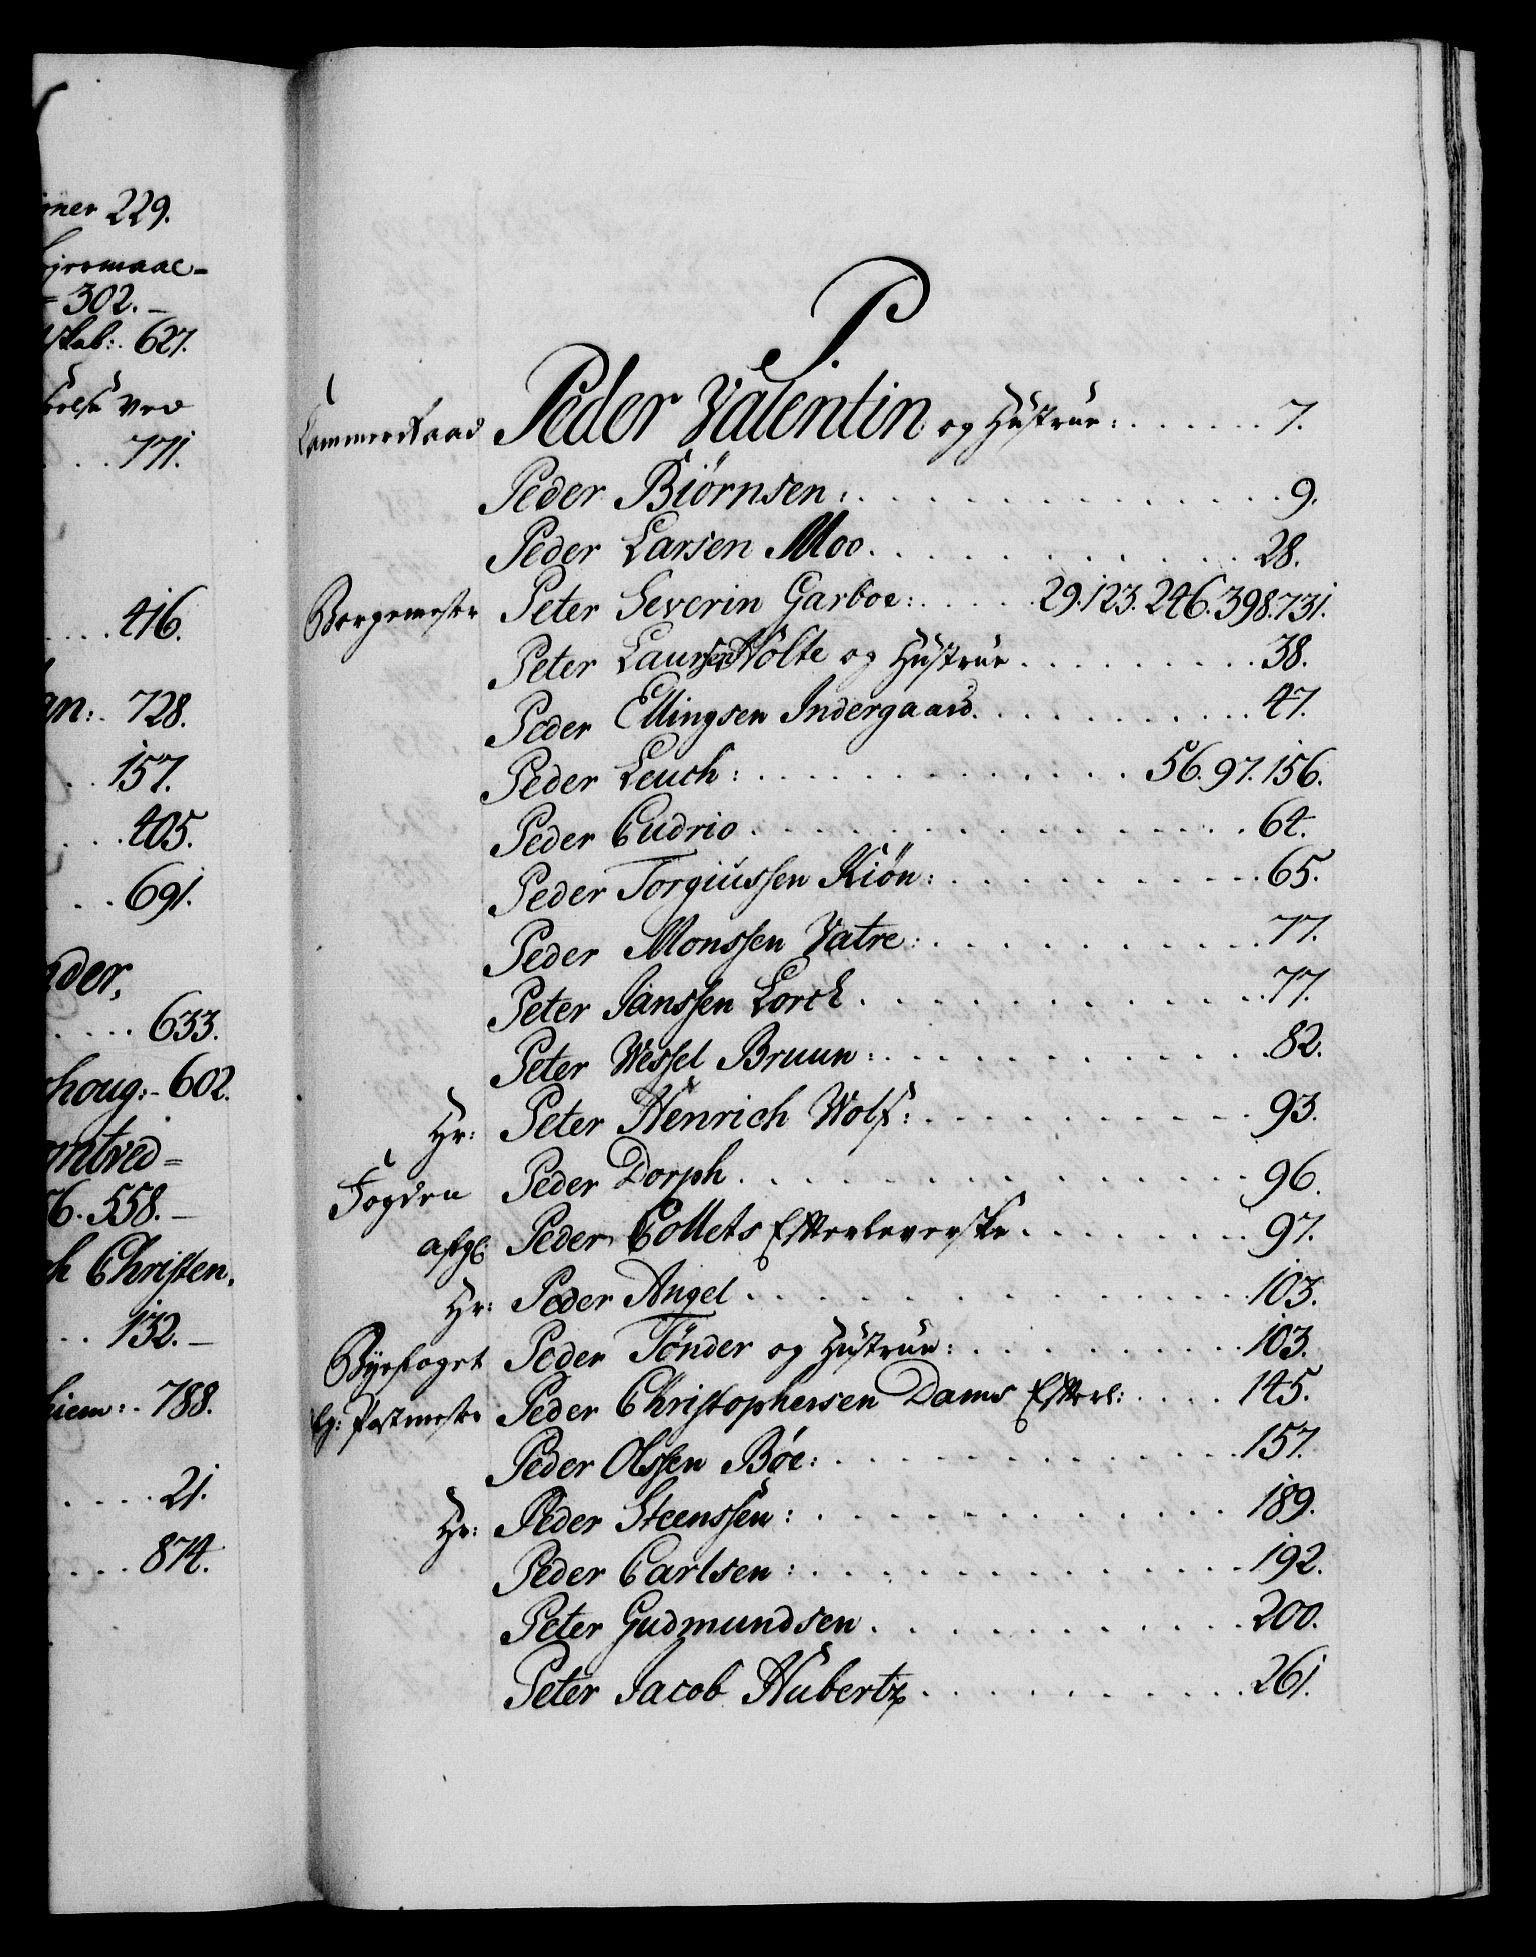 229.
= 302.
skab: 627.
ved
771.
416.
728.
157.
405.
691.
633.
houg: 602.
558.
Christen.
132.
hiem: 788.
21.
874.
P.
Cammerraad Peder Valentin og Hustrue: 7.
Peder Biørnsen: 9.
Peder Larsen Moo. 28.
Borgemester Peter Severin Garboe: 29. 123. 246. 398. 731.
Peter Laursen Holte og Hustrue 38.
Peder Ellingsen Indergaard. 47.
Peder Leuch: 56. 97. 156.
Peder Cudrio 64.
Peder Torgiussen Kiøn: 65.
Peder Monssen Vatre: 77.
Peter Janssen Lorck 77.
Peter Wessel Bruun: 82.
Hr: Peter Henrich Wolf: 93.
Fogden Peder Dorph 96.
afgl: Peder Collets Efterleverske 97.
Hr: Peder Angel 103.
Byefoget Peder Tønder og Hustrue: 103.
Postmester Peder Christophersen Dams Efterl: 145.
Peder Olssen Bøe: 157.
Hr: Peder Steenssen: 189.
Peder Carlsen: 192.
Peter Gudmundsen 200.
Peter Jacob Hubertz 261.